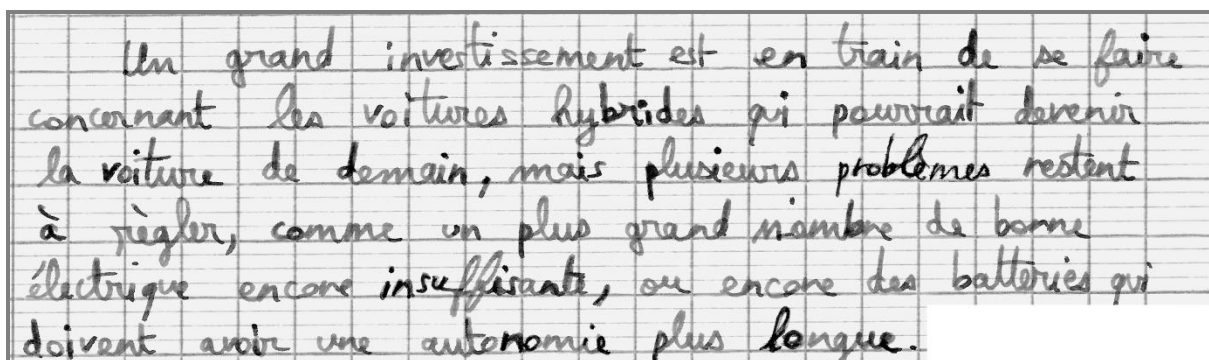 Un grand investissement est en train de se faire
concernant les voitures hybrides qui pourrait devenir
la voiture de demain, mais plusieurs problèmes restent
à règler, comme un plus grand nombre de borne
électrique encore insuffisante, ou encore des batteries qui
doivent avoir une autonomie plus longue.